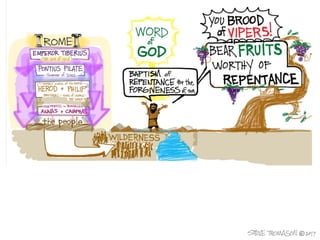 ROME
EMPEROR TIBERIUS
PONTIUS PILATE
HEROD + PHILIP
ANNAS + CAIAPHAS
the people
WORD
of
GOD
BAPTISM of
REPENTANCE for the
FORGIVENESS of sin
YOU BROOD
of VIPERS!
BEAR FRUITS
WORTHY OF
REPENTANCE
WILDERNESS
STEVE THOMASON © 2017